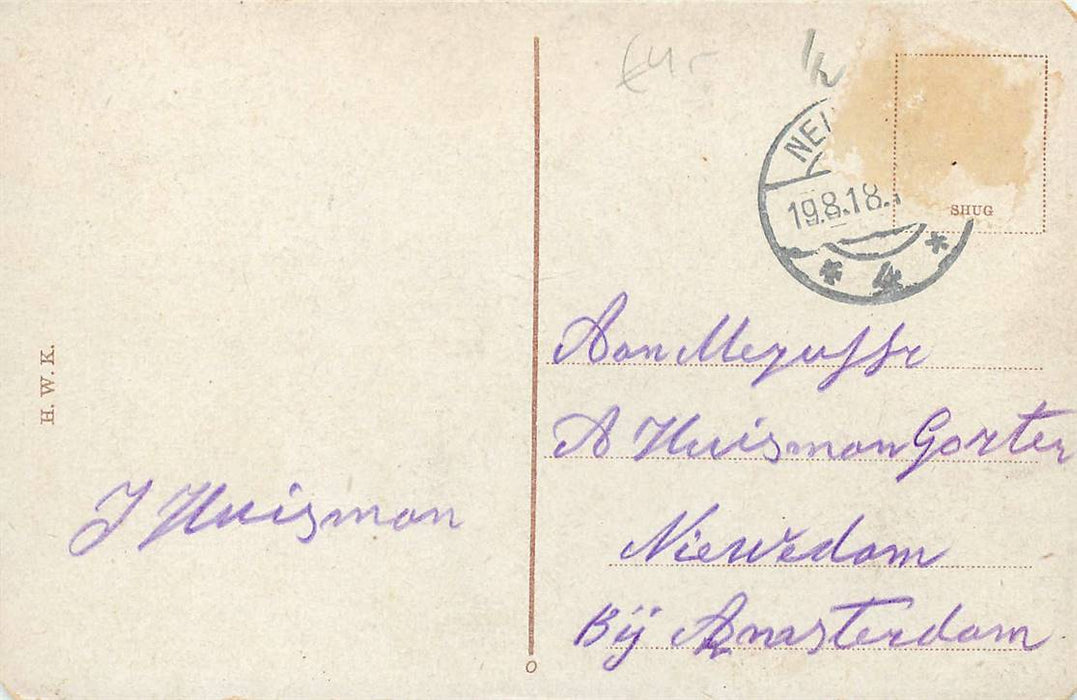 H. W. K.
J Huisman
1/2
NE
19.8.18.
* 4 *
SHUG
Aan Mejuffr
A Huisman Gorter
Niewedam
Bij Amsterdam
O